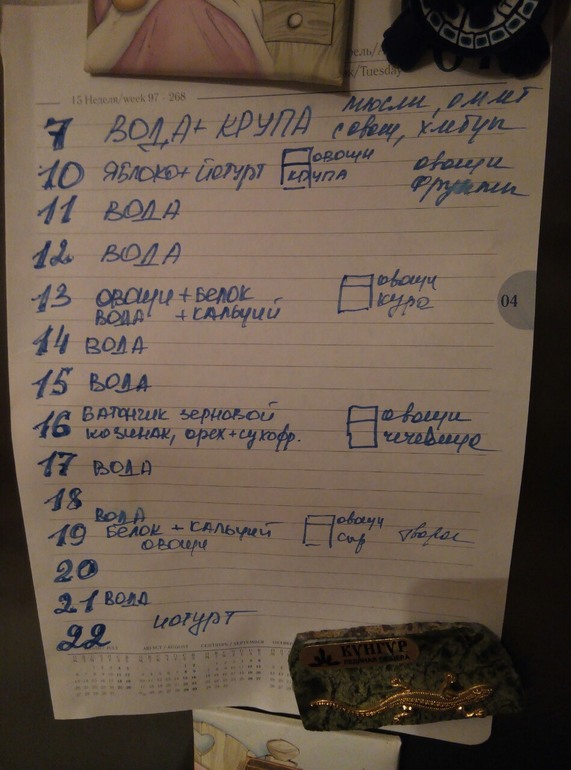 15 Неделя/week 97 - 268
/Tuesday
7 ВОДА + КРУПА мюсли, омлет
с овощ, хлебцы
10 ЯБЛОКО + ЙОГУРТ овощи КРУПА овощи фрукты
11 ВОДА
12 ВОДА
13 ОВОЩИ + БЕЛОК овощи
ВОДА + КАЛЬЦИЙ кура
04
14 ВОДА
15 ВОДА
16 БАТОНЧИК ЗЕРНОВОЙ овощи
козинак, орех + сухофр. чечевица
17 ВОДА
18
ВОДА
19 БЕЛОК + КАЛЬЦИЙ овощи
овощи сыр творог
20
21 ВОДА
22 йогурт
КУНГУР
ЛЕДЯНАЯ ПЕЩЕРА